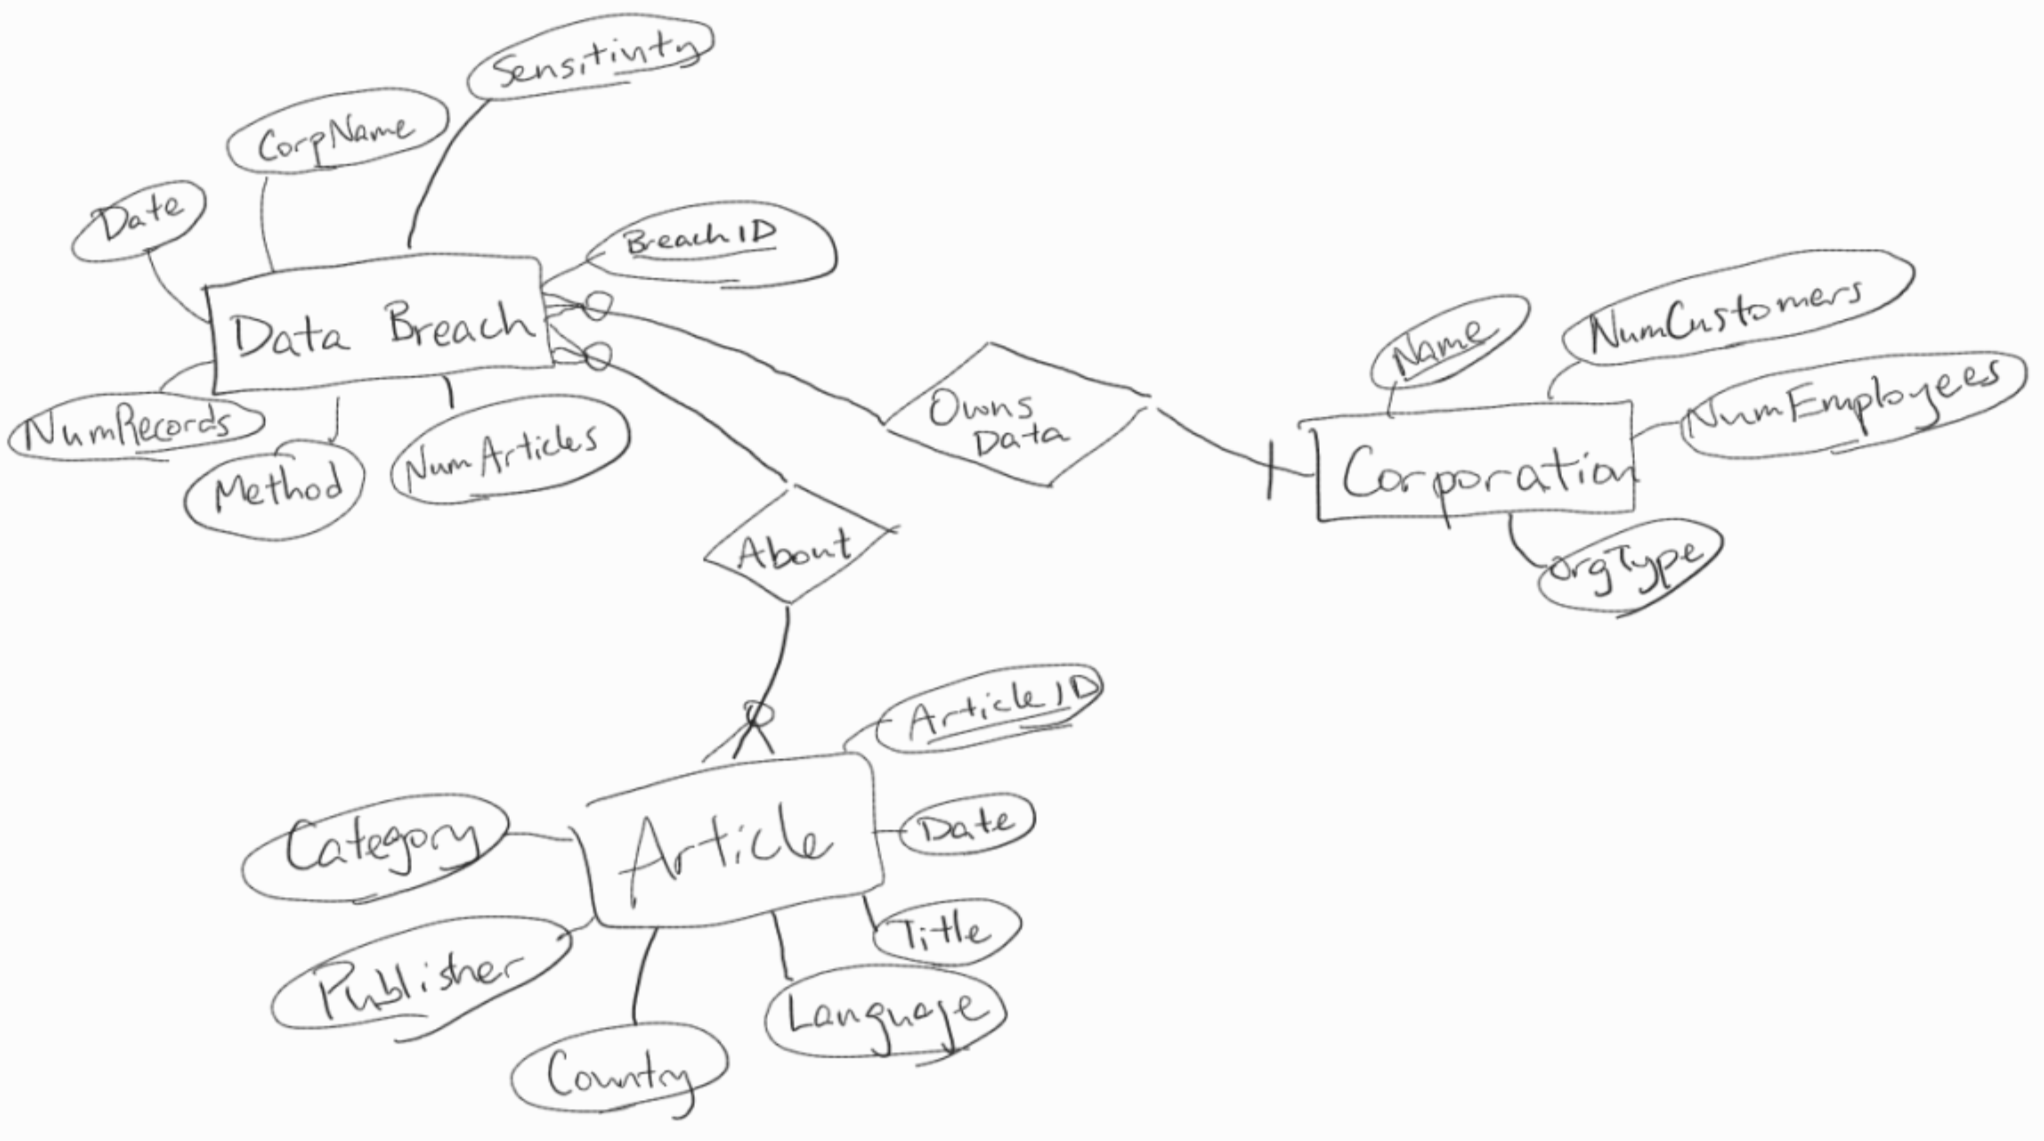 Sensitivity
CorpName
Date
BreachID
Data Breach
NumRecords
Method
NumArticles
Owns
Data
Name
NumCustomers
NumEmployees
Corporation
OrgType
About
ArticleID
Article
Category
Date
Title
Publisher
Language
Country